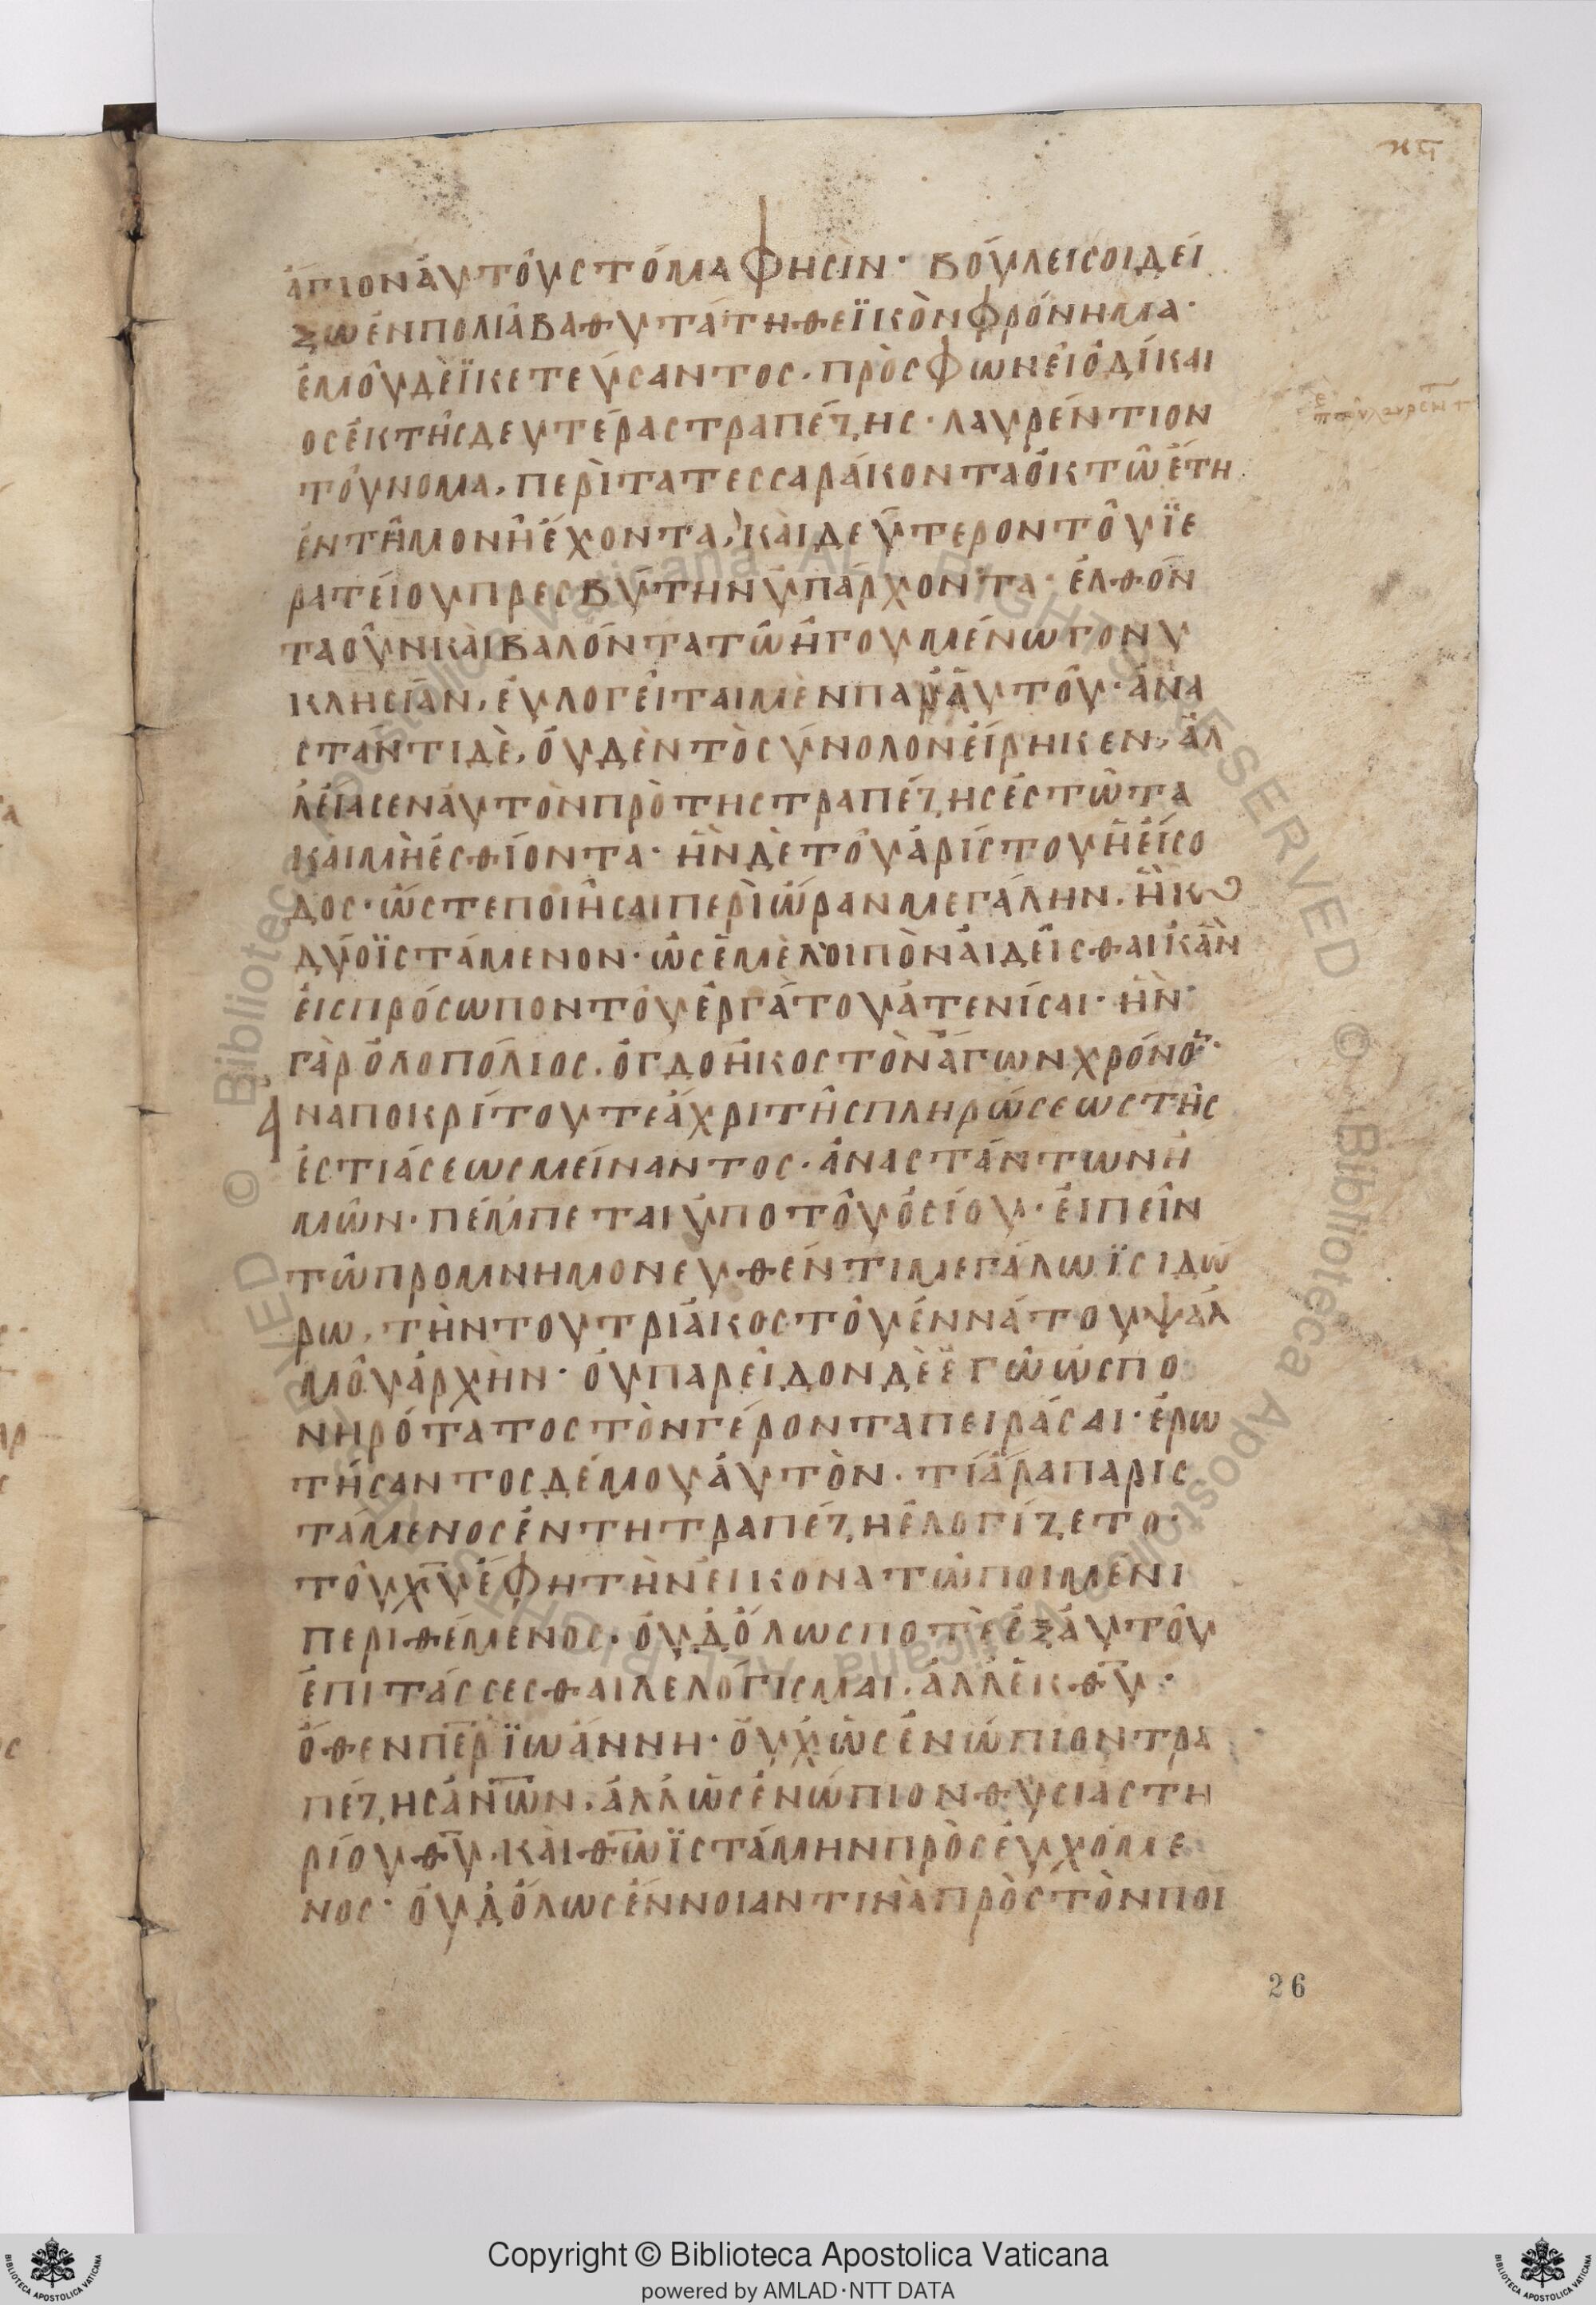 κϛ
ἅγιον ἀυτοῦ στόμα φησὶν· βούλει σοι δεί
ξω ἐν πολιᾶ βαθυτάτη θεϊκὸν φρόνημα·
ἐμοῦ δὲ ϊκετεύσαντος, προσφωνεῖ ὁ δίκαι
ος ἐκ τῆς δευτέρας τραπέζης· λαυρέντιον
τόυνομα, περὶ τα τεσσαράκοντα ὀκτῶ ἔτη
ἐν τῆ μονῆ ἔχοντα, κὰι δεύτερον τοῦ ϊε
ρατείου πρεσβύτην ὑπάρχοντα· ἐλθόν
τα οὖν κὰι βαλόντα τῶ ἡγουμένω γονυ
κλησίαν, ἐυλογεῖται μὲν παρ᾽ ἀυτοῦ· ἀνα
στάντι δὲ, ὀυδὲν τὸ σύνολον ἔιρηκεν, ἀλ
λ᾽ ἔιασεν ἀυτὸν πρὸ της τραπέζης ἑστῶτα
κὰι μὴ ἐσθίοντα· ἦν δὲ τοῦ ἀρίστου ἡ ἔισο
δος· ὥστε ποιῆσαι περὶ ὥραν μεγάλην, ἢ κὰι
δύο ϊστάμενον· ὡς ἐμὲ λοιπὸν ἀιδεῖσθαι κἂν
ἐις πρόσωπον τοῦ ἐργάτου ἀτενίσαι· ἦν
γὰρ ὁλοπόλιος, ὀγδοήκοστὸν ἄγων χρόνον·
Αναποκρίτου τε ἄχρι τῆς πληρώσεως τῆς
ἑστιάσεως μείναντος· ἀναστάντων ἡ
μῶν· πέμπεται ὑπο τοῦ ὁσίου· ἐιπεῖν
τῶ προμνημονευθέντι μεγάλω ϊσιδώ
ρω, τὴν του τριακοστοῦ ἐννάτου ψαλ
μοῦ ἀρχὴν· ὀυ παρεῖδον δὲ ἐγῶ ὡς πο
νηρότατος τὸν γέροντα πειράσαι· ἐρω
τήσαντος δέ μου ἀυτὸν· τί ἄρα παρισ
τάμενος ἐν τη τραπέζη ἐλογίζετο·
τοῦ χυ ἔφη τὴν ἐικονα τῶ ποιμενι
περιθέμενος· ὀυδ᾽ ὅλως ποτὲ ἐξ ἀυτοῦ
ἐπιτάσσεσθαι λελόγισμαι, ἀλλ᾽ ἐκ θυ·
ὅθεν περ ϊωάννη· ὀυχ᾽ ὡς ἐνώπιον τρα
πέζης ἀνων, ἀλλ᾽ ὡς ἐνώπιον θυσιαστη
ρίου θυ, κὰι θω ϊστάμην προσευχόμε
νος· ὀυδ᾽ ὅλως ἔννοιαν τινὰ πρὸς τὸν ποι
26
Copyright © Biblioteca Apostolica Vaticana
powered by AMLAD·NTT DATA